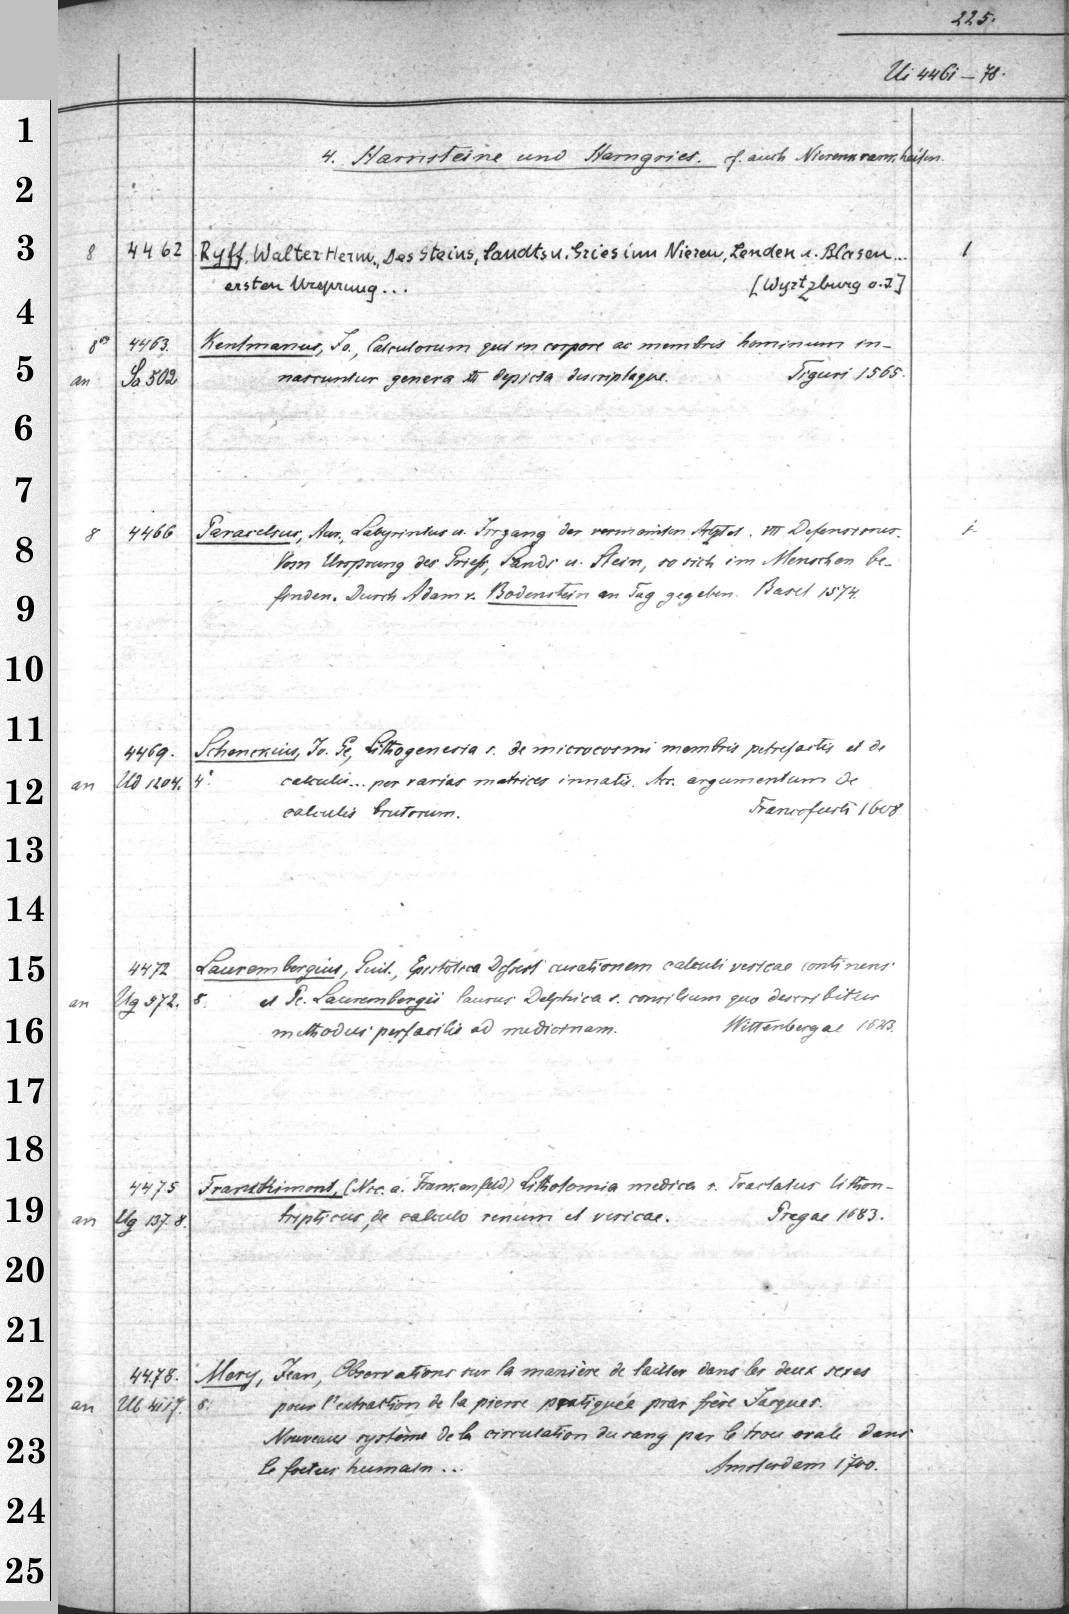 225.
Ui 4461–78.
1
4. Harnsteine und Harngries. cf. auch Nierenkrankheiten.
2
3
8 4462 Ryff, Walter Herm., Des Steins, Sandts u. Gries inn Nieren, Lenden u. Blasen... 1
ersten Ursprung... [Wyrtzburg o. J.]
4
8° 4463. Kentmanus, Jo., Calculorum qui in corpore ac membris hominum in-
5
an Sa 502 nascuntur genera XII depicta descriptaque. Tiguri 1565.
6
7
8 4466 Paracelsus, Aur., Labyrintus u. Irrgang der vermeinten Artzet. VII Defensiones. 1
8
Vom Ursprung des Grieß, Sands u. Stein, so sich im Menschen be-
9
finden. Durch Adam v. Bodenstein an Tag gegeben. Basel 1574.
10
11
4469. Schenckius, Jo. Ge., Lithogenesia s. de microcosmi membris petrefactis et de
12
an Ud 1204. 4° calculis... per varias matrices innatis. Acc. argumentum de
calculis brutorum. Francofurti 1608
13
14
15
4472 Laurembergius, Guil., Epistolica curationem calculi vesicae continens
an Ug 572. 8. et Pe. Laurembergii laurus Delphica s. consilium quo describitur
16
methodus perfacilis ad medicinam. Wittenbergae 1623.
17
18
4475 Franchimont, (Nic. a. Frankenfeld) Lithotomia medica s. Tractatus lithon-
19
an Ug 137. 8. tripticus, de calculo renum et vesicae. Pragae 1683.
20
21
4478. Mery, Jean, Observations sur la manière de tailler dans les deux sexes
22
an Ub 4117. 8. pour l'extraction de la pierre pratiquée par frère Jacques.
Nouveau système de la circulation du sang par le trou ovale dans
23
le foetus humain... Amsterdam 1700.
24
25